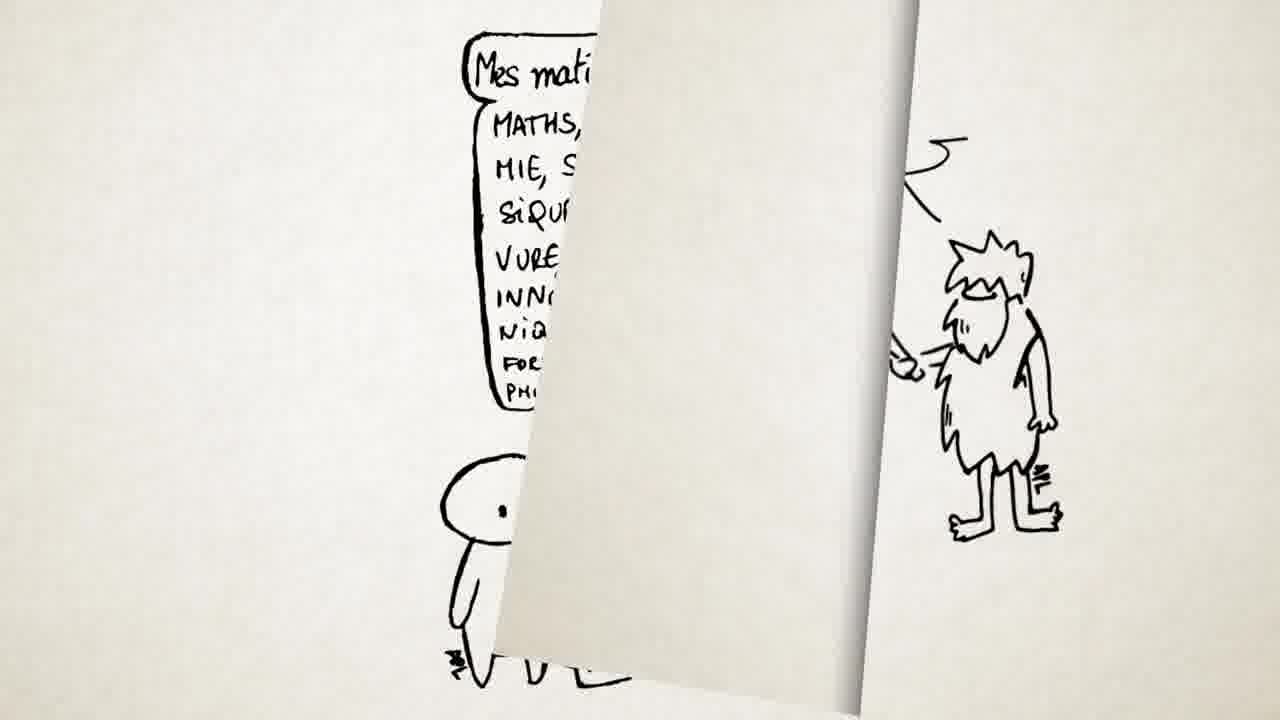 Mes mati
MATHS,
MIE, S
SiQU
VURE
INN
NiQ
FOR
PH